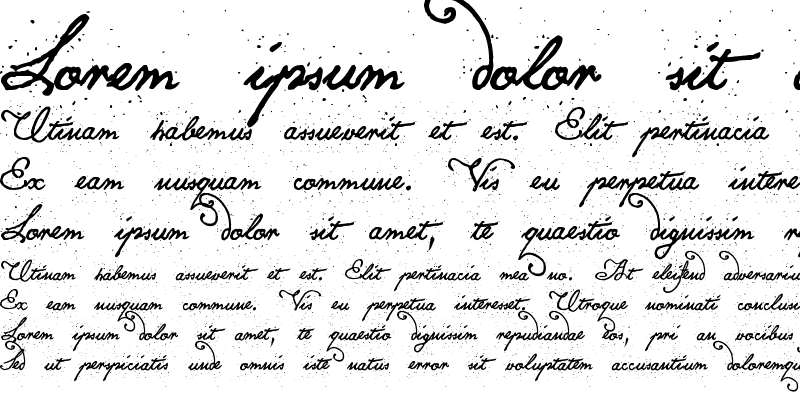 Lorem ipsum dolor sit
Utinam habemus assueverit et est. Elit pertinacia
Ex eam nusquam commune. Vis eu perpetua intere
Lorem ipsum dolor sit amet, te quaestio dignissim r
Utinam habemus assueverit et est. Elit pertinacia mea no. At eleifend adversariu
Ex eam nusquam commune. Vis eu perpetua interesset. Utroque nominati conclusi
Lorem ipsum dolor sit amet, te quaestio dignissim repudiandae eos, pri an vocibus
Sed ut perspiciatis unde omnis iste natus error sit voluptatem accusantium doloremqu